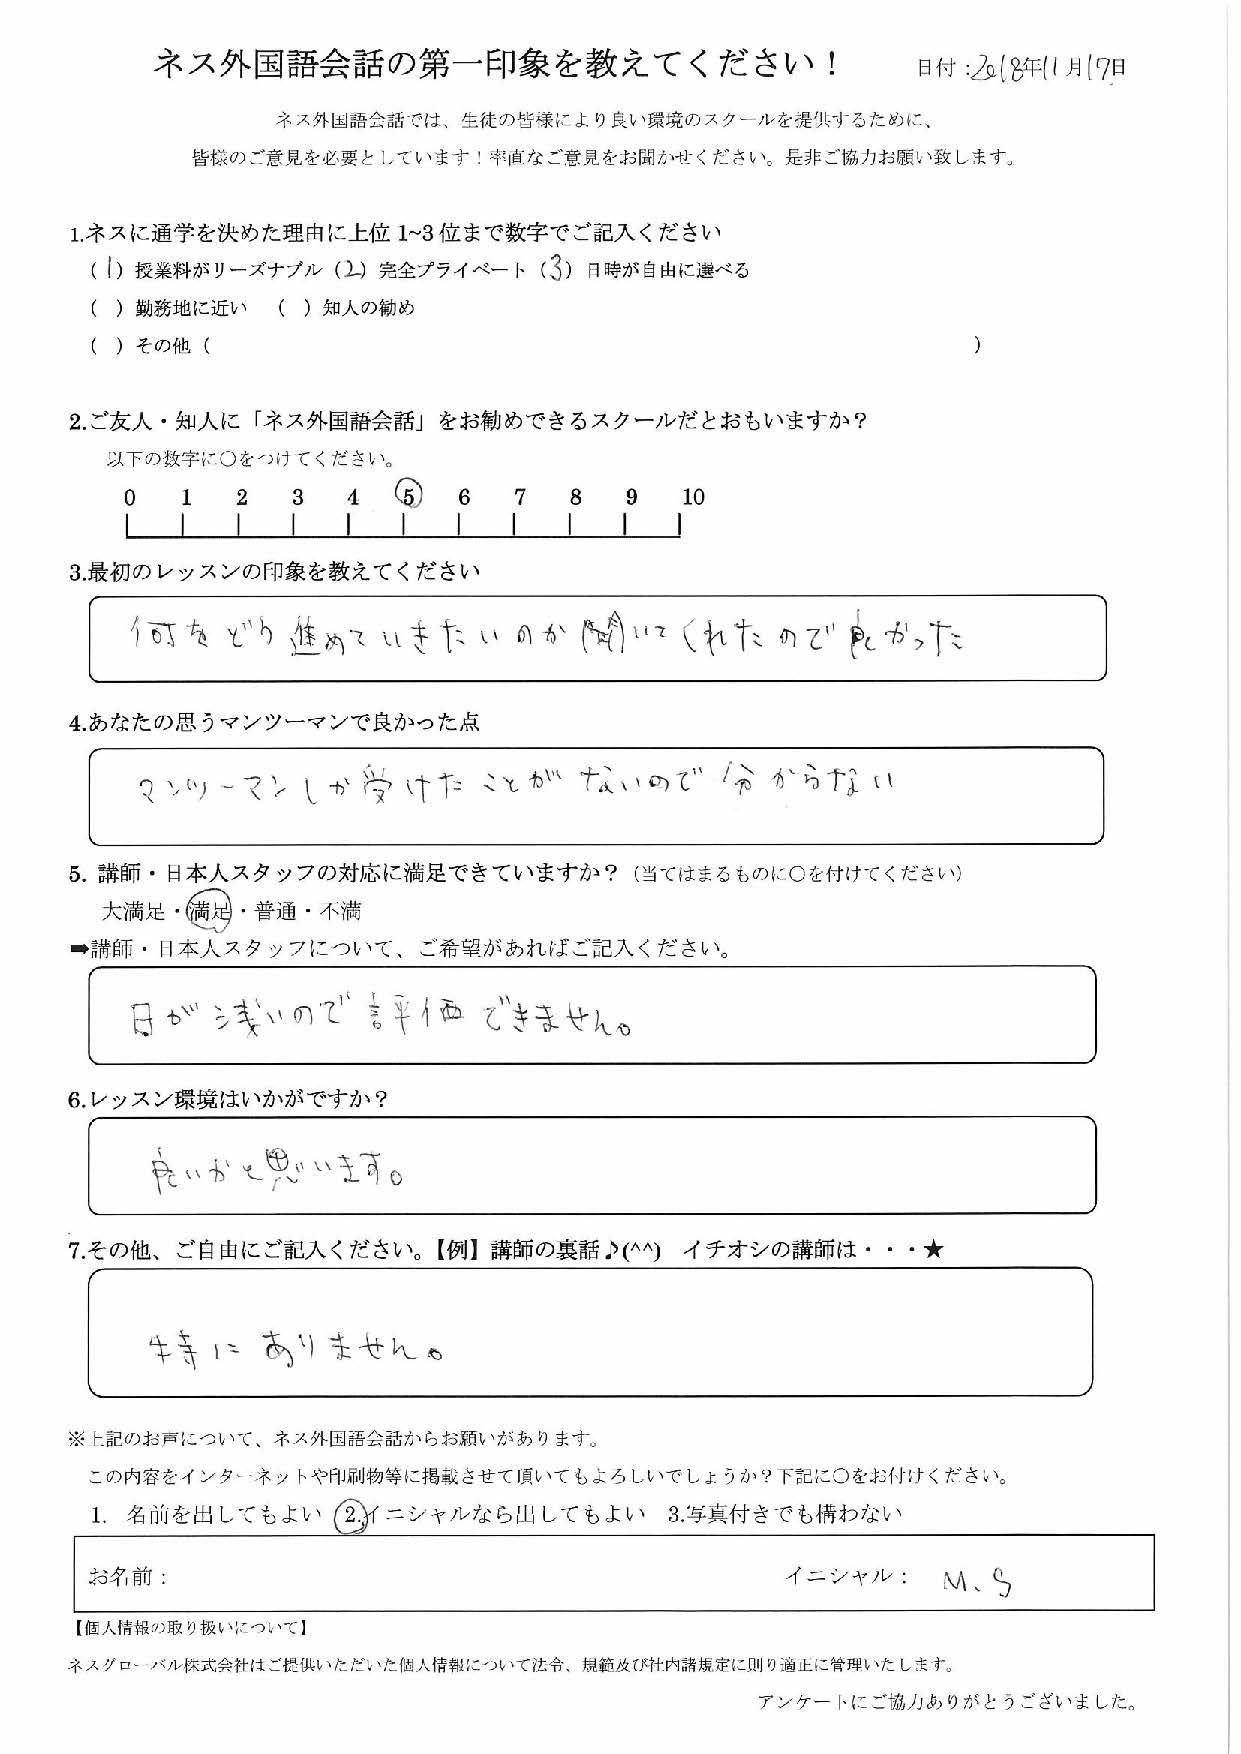 ネス外国語会話の第一印象を教えてください！ 日付:2018年11月17日
ネス外国語会話では、生徒の皆様により良い環境のスクールを提供するために、
皆様のご意見を必要としています！率直なご意見をお聞かせください。是非ご協力お願い致します。
1.ネスに通学を決めた理由に上位 1~3 位まで数字でご記入ください
（1）授業料がリーズナブル（2）完全プライベート（3）日時が自由に選べる
（ ）勤務地に近い （ ）知人の勧め
（ ）その他（ ）
2.ご友人・知人に「ネス外国語会話」をお勧めできるスクールだとおもいますか？
以下の数字に○をつけてください。
0 1 2 3 4 5 6 7 8 9 10
3.最初のレッスンの印象を教えてください
何をどう進めていきたいのか聞いてくれたので良かった
4.あなたの思うマンツーマンで良かった点
マンツーマンしか受けたことがないので分からない
5. 講師・日本人スタッフの対応に満足できていますか？（当てはまるものに○を付けてください）
大満足・満足・普通・不満
➡講師・日本人スタッフについて、ご希望があればご記入ください。
日が浅いので評価できません。
6.レッスン環境はいかがですか？
良いかと思います。
7.その他、ご自由にご記入ください。【例】講師の裏話♪(^^) イチオシの講師は・・・★
特にありません。
※上記のお声について、ネス外国語会話からお願いがあります。
この内容をインターネットや印刷物等に掲載させて頂いてもよろしいでしょうか？下記に○をお付けください。
1. 名前を出してもよい 2.イニシャルなら出してもよい 3.写真付きでも構わない
お名前： イニシャル： M.S
【個人情報の取り扱いについて】
ネスグローバル株式会社はご提供いただいた個人情報について法令、規範及び社内諸規定に則り適正に管理いたします。
アンケートにご協力ありがとうございました。